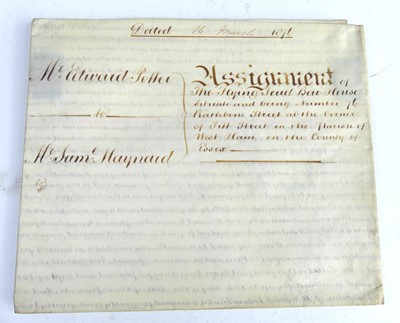 Dated 16 March 1876
Mr. Edward Potter
to
Mr. Saml. Maynard
Assignment of
The Flying Scud Beer House
Situate and being Number 76
Rathbone Street at the corner
of Pitt Street in the Parish of
West Ham in the County of
Essex